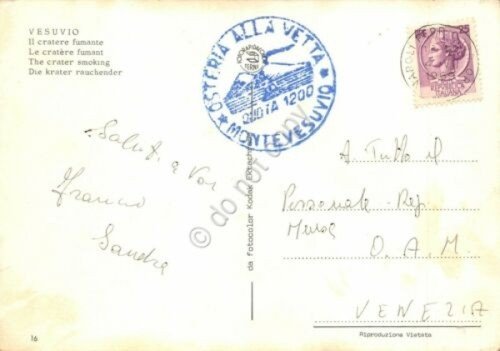 VESUVIO
Il cratere fumante
Le cratère fumant
The crater smoking
Die krater rauchender
OSTERIA ALLA VETTA
QUOTA 1200
MONTEVESUVIO
25
NAPOLI
Saluti a Voi
Franco
Sandra
da fotocolor Kodak Ektachrome
A Tutto il
Personale - Rep.
O. A. M.
VENEZIA
16
Riproduzione Vietata
do not copy